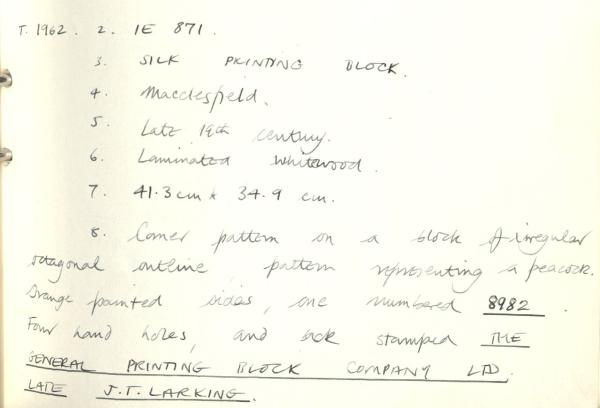 T. 1962. 2. IE 871.
3. SILK PRINTING BLOCK.
4. Macclesfield.
5. Late 19th century.
6. Laminated whitewood.
7. 41.3 cm x 34.9 cm.
8. Corner pattern on a block of irregular
octagonal outline, pattern representing a peacock.
Orange painted sides, one numbered 8982.
Four hand holes, and back stamped THE
GENERAL PRINTING BLOCK COMPANY LTD.
LATE J.T. LARKING.